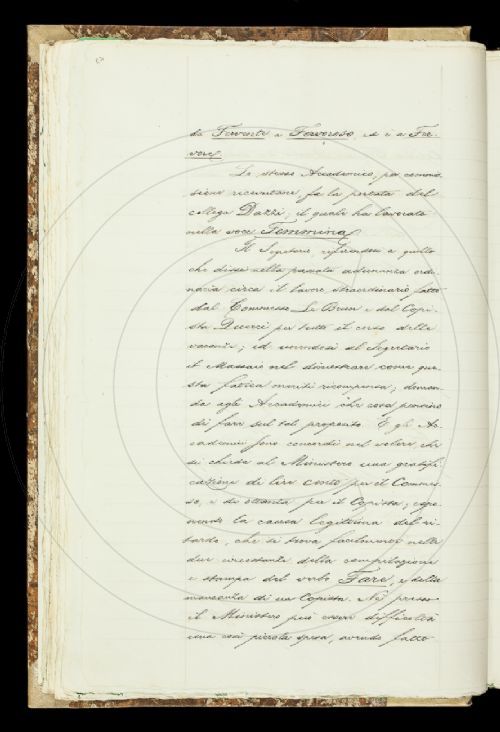 da Fervente a Fervoroso, ed è a Fer-
vore.
Lo stesso Accademico, per commis-
sione ricevutane fa la portata del
collega Dazzi; il quale ha lavorato
nella voce Femmina.
Il Segretario, riferendosi a quello
che disse nella passata adunanza ordi-
naria circa il lavoro straordinario fatto
dal Commesso Le Brun e dal Copi-
sta per tutto il corso delle
vacanze; ed unendosi al Segretario
il Massaio nel dimostrare come que-
sta fatica meriti ricompensa; doman-
da agli Accademici che cosa pensino
di fare sul tal proposito. E gli Ac-
cademici sono concordi nel volere, che
si chieda al Ministero una gratifi-
cazione di lire cento per il Commes-
so, e di ottanta per il Copista; espo-
nendo la causa legittima del ri-
tardo, che si trova facilmente nelle
due circostanze della compilazione
e stampa del verbo Fare, e della
mancanza di un Copista. Nè presso
il Ministero può esser difficoltà
una così piccola spesa, avendo fatto